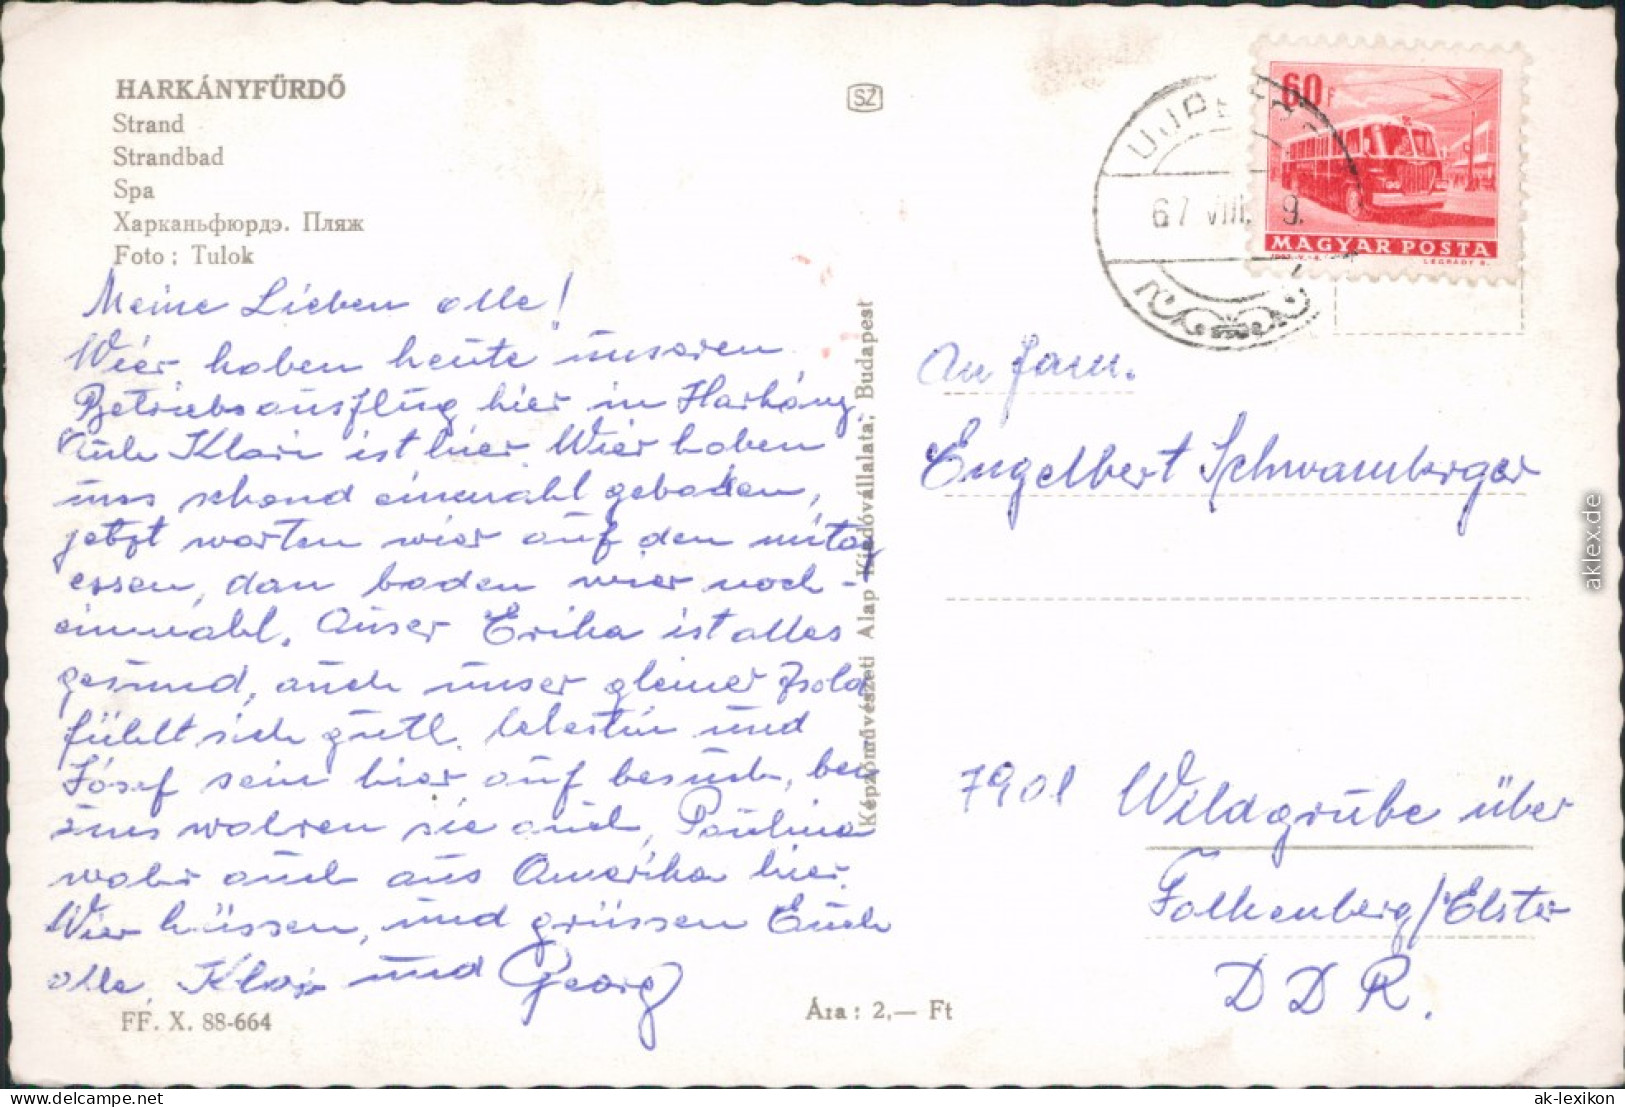 HARKÁNYFÜRDŐ
Strand
Strandbad
Spa
Харканьфюрдэ. Пляж
Foto: Tulok
Meine Lieben alle!
Wier haben heute unseren
Betriebsausflug hier in Harkány
Auch Klari ist hier. Wier haben
uns schond einmahl gebaden,
jetzt warten wier auf den mitag
essen, dan baden wier noch-
einmahl. Auser Erika ist alles
gesund, auch unser gleiner Zsold
fühlt sich gutt. Celestin und
Jósef sein hier auf besuch, bei
uns wahren sie auch, Paulina
wahr auch aus Amerika hier.
Wier küssen, und grüssen Euch
alle. Klari und Georg
FF. X. 88-664
SZ
Képzőművészeti Alap Kiadóvállalata, Budapest
Ára: 2,— Ft
60F
MAGYAR POSTA
LÉGRÁDY S.
UJPEST
67 VIII. 9.
An Fam.
Engelbert Schwamberger
7901 Wildgrube über
Falkenberg/Elster
DDR.
aklex.de
hip.net
ak-lexikon